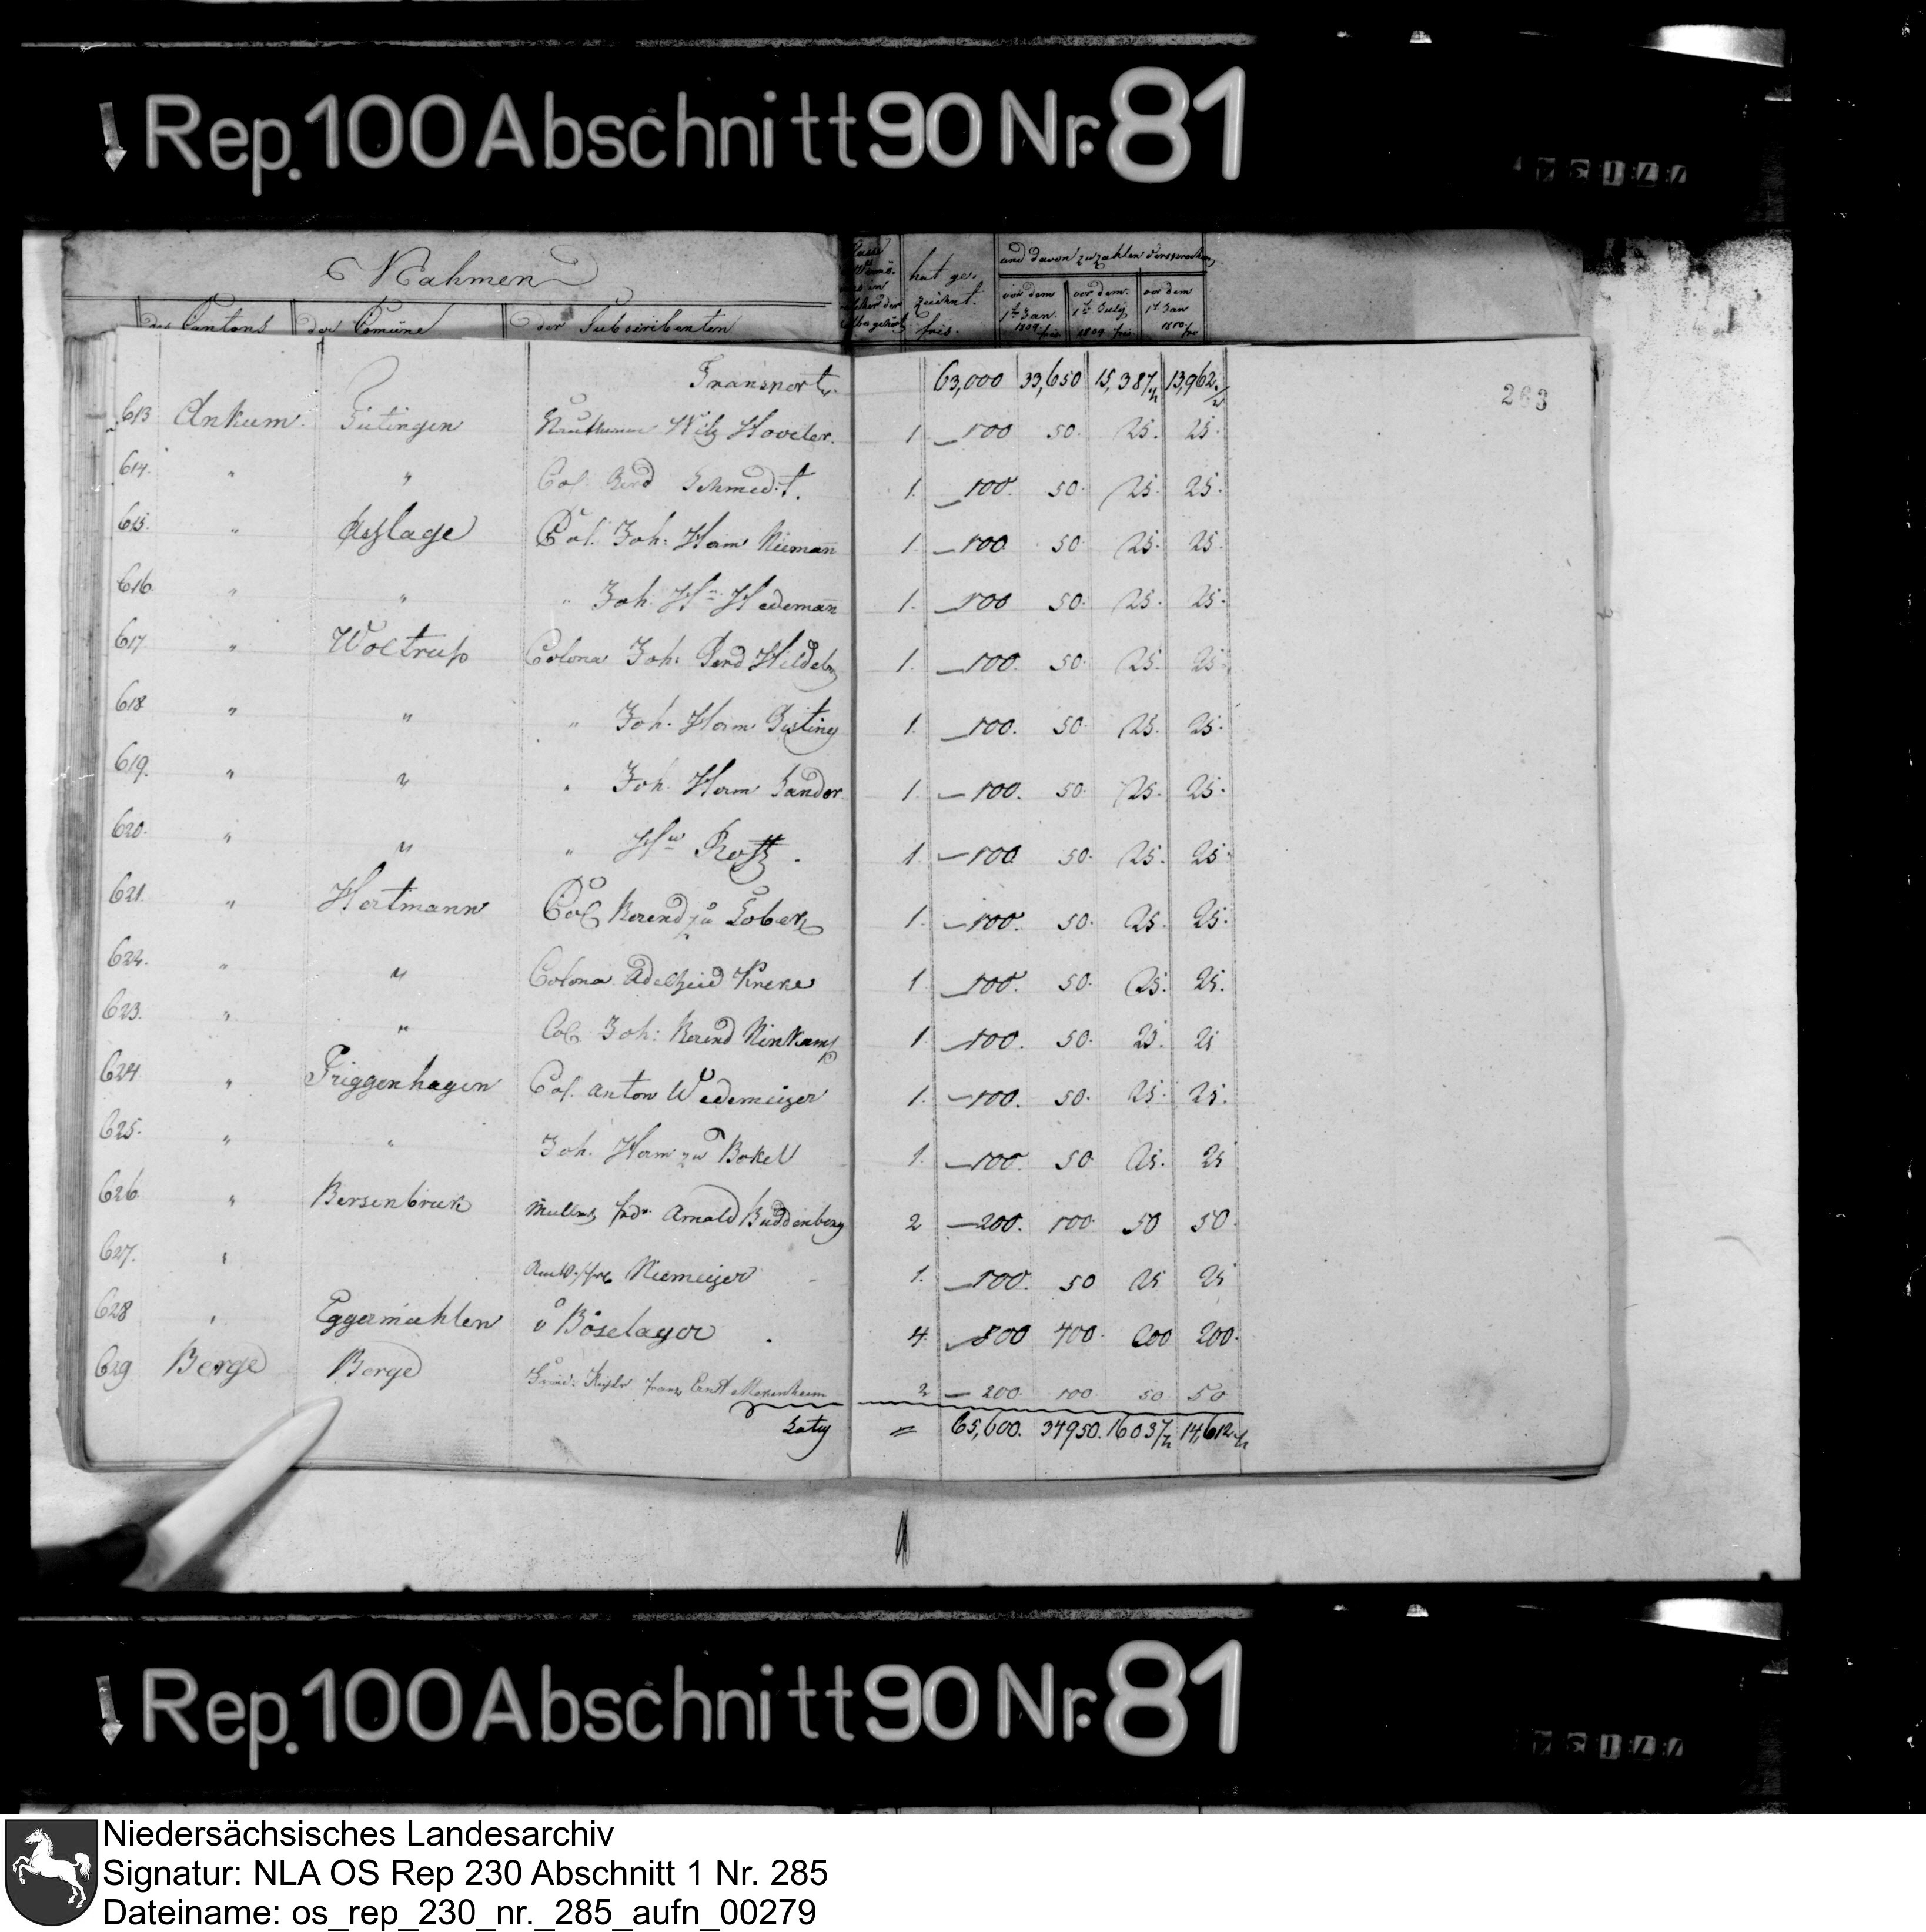 Rep. 100 Abschnitt 90 Nr. 81
Nahmen
des Cantons der Comüne der Subscribenten
hat gezeichnet. frcs.
und davon zu zahlen versprochen
vor dem 1ten Jan. 1809. frcs vor dem 1ten July 1809 frcs vor dem 1t Jan 1810. frc
263
Transport. 63,000 33,650 15,387½ 13,962½
613 Ankum. Hoveler. 1 100 50. 25. 25.
614. " " Col. Berd Schmedt. 1. 100. 50. 25. 25.
615. " Asslage Col. Joh: Herm Niemann 1. 100 50 25. 25.
616. " " " Joh. Hn: Hedemann 1. 100 50. 25. 25.
617. " Woltrup Colona Joh: Berd 1. 100. 50. 25. 25.
618 " " " Joh. Herm 1. 100. 50. 25. 25.
619. " " " Joh. Herm Sander 1 100. 50. 25. 25.
620. " " " 1 100 50. 25. 25.
621. " Hertmann Col Berend zu 1. 100. 50. 25. 25.
622. " " Colona Adelheid Kreke 1 100. 50. 25. 25.
623. " " Col Joh: Berend Ninkamp 1. 100. 50. 25. 25
624 " Priggenhagen Col. Anton Wedemeijer 1. 100. 50. 25. 25.
625. " " Joh. Herm zu Bokel 1. 100. 50. 25. 25
626. " Bersenbruck Arnold Buddenberg 2 200. 100. 50 50.
627. " Niemeijer 1. 100. 50 25 25
628 " Eggermuhlen v Böselager 4. 800 400. 200 200.
629 Berge Berge Franz Ernst 2 200. 100. 50. 50
Latus = 65,600. 34950. 16037½ 14,612½
Rep. 100 Abschnitt 90 Nr. 81
Niedersächsisches Landesarchiv
Signatur: NLA OS Rep 230 Abschnitt 1 Nr. 285
Dateiname: os_rep_230_nr._285_aufn_00279